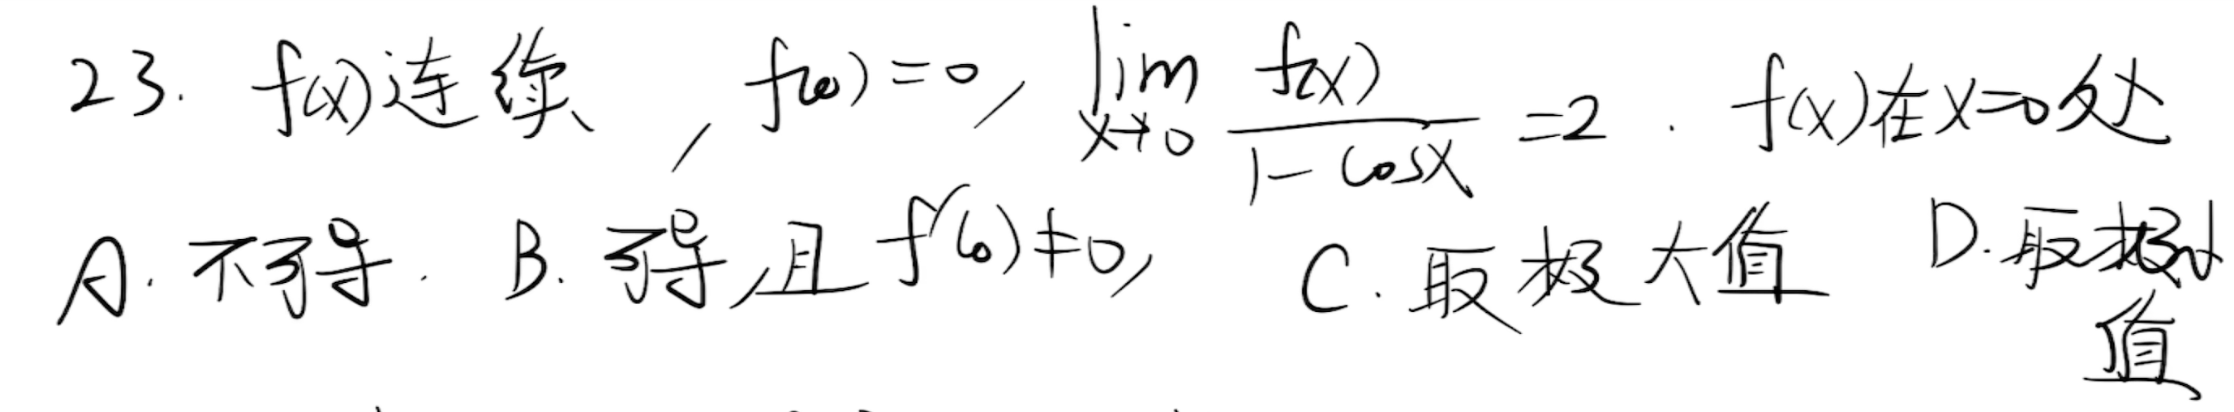 23. f(x)连续, f(0)=0, lim x→0 f(x)/(1-cosx) =2. f(x)在x=0处
A. 不可导. B. 可导,且f'(0)≠0, C. 取极大值 D. 取极小
值